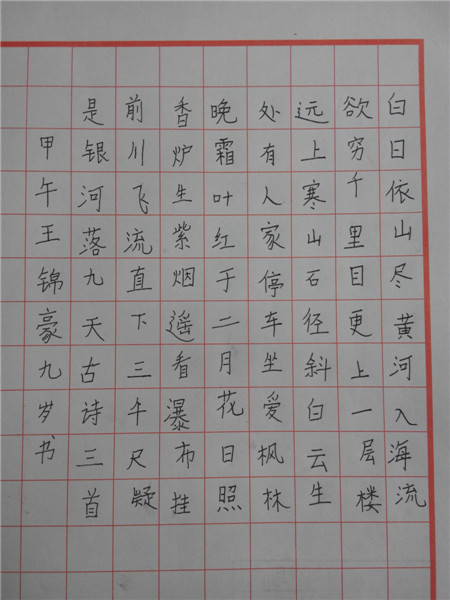 白日依山尽黄河入海流
欲穷千里目更上一层楼
远上寒山石径斜白云生
处有人家停车坐爱枫林
晚霜叶红于二月花日照
香炉生紫烟遥看瀑布挂
前川飞流直下三午尺疑
是银河落九天古诗三首
甲午王锦豪九岁书